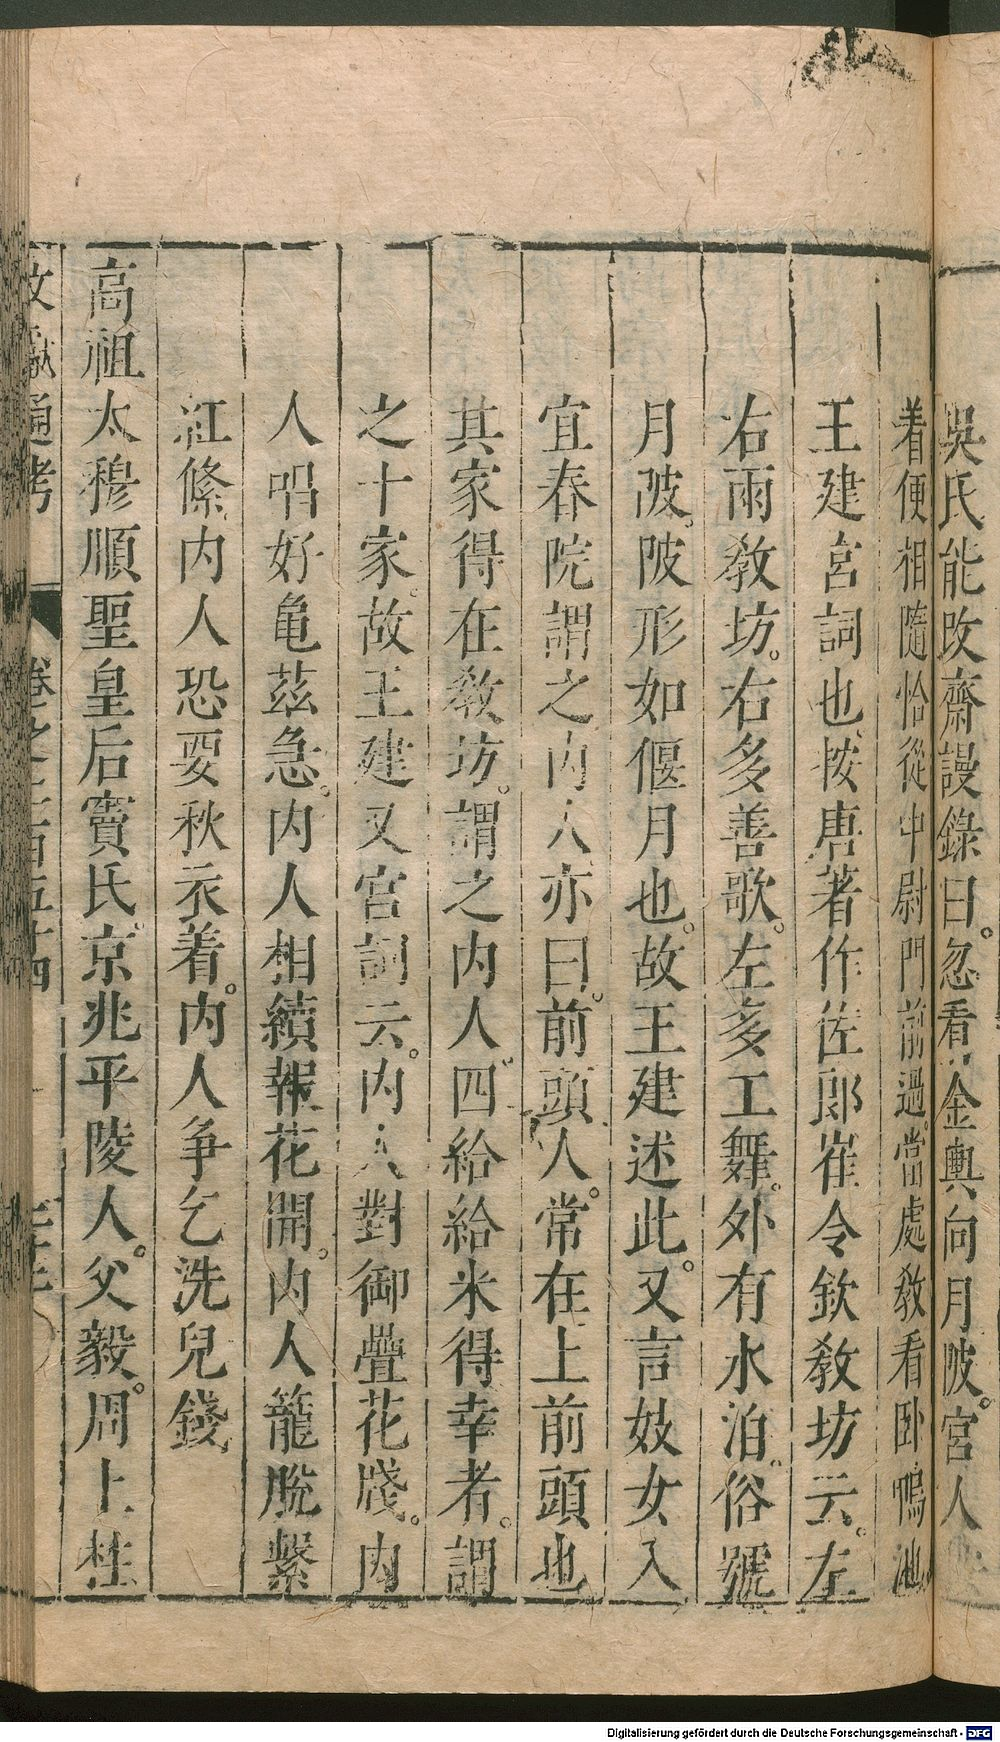 吳氏能改齋謾錄曰。忽看金輿向月陂。宮人
着便相隨恰從中尉門前過。當處教看臥鴨池
王建宮詞也按唐著作佐郎崔令欽教坊云。左
右兩教坊。右多善歌。左多工舞。外有水泊。俗號
月陂。陂形如偃月也。故王建述此。又言妓女入
宜春院謂之內人亦曰。前頭人。常在上前頭也
其家得在教坊。謂之內人。四給給米得幸者。謂
之十家。故王建又宮詞云。內人對御疊花牋。內
人唱好亀茲急。內人相續報花開。內人籠脫繫
紅絛內人恐要秋衣着。內人爭乞洗兒錢
高祖太穆順聖皇后竇氏。京兆平陵人。父毅。周上柱
文獻通考 卷之二百五十四
Digitalisierung gefördert durch die Deutsche Forschungsgemeinschaft - DFG